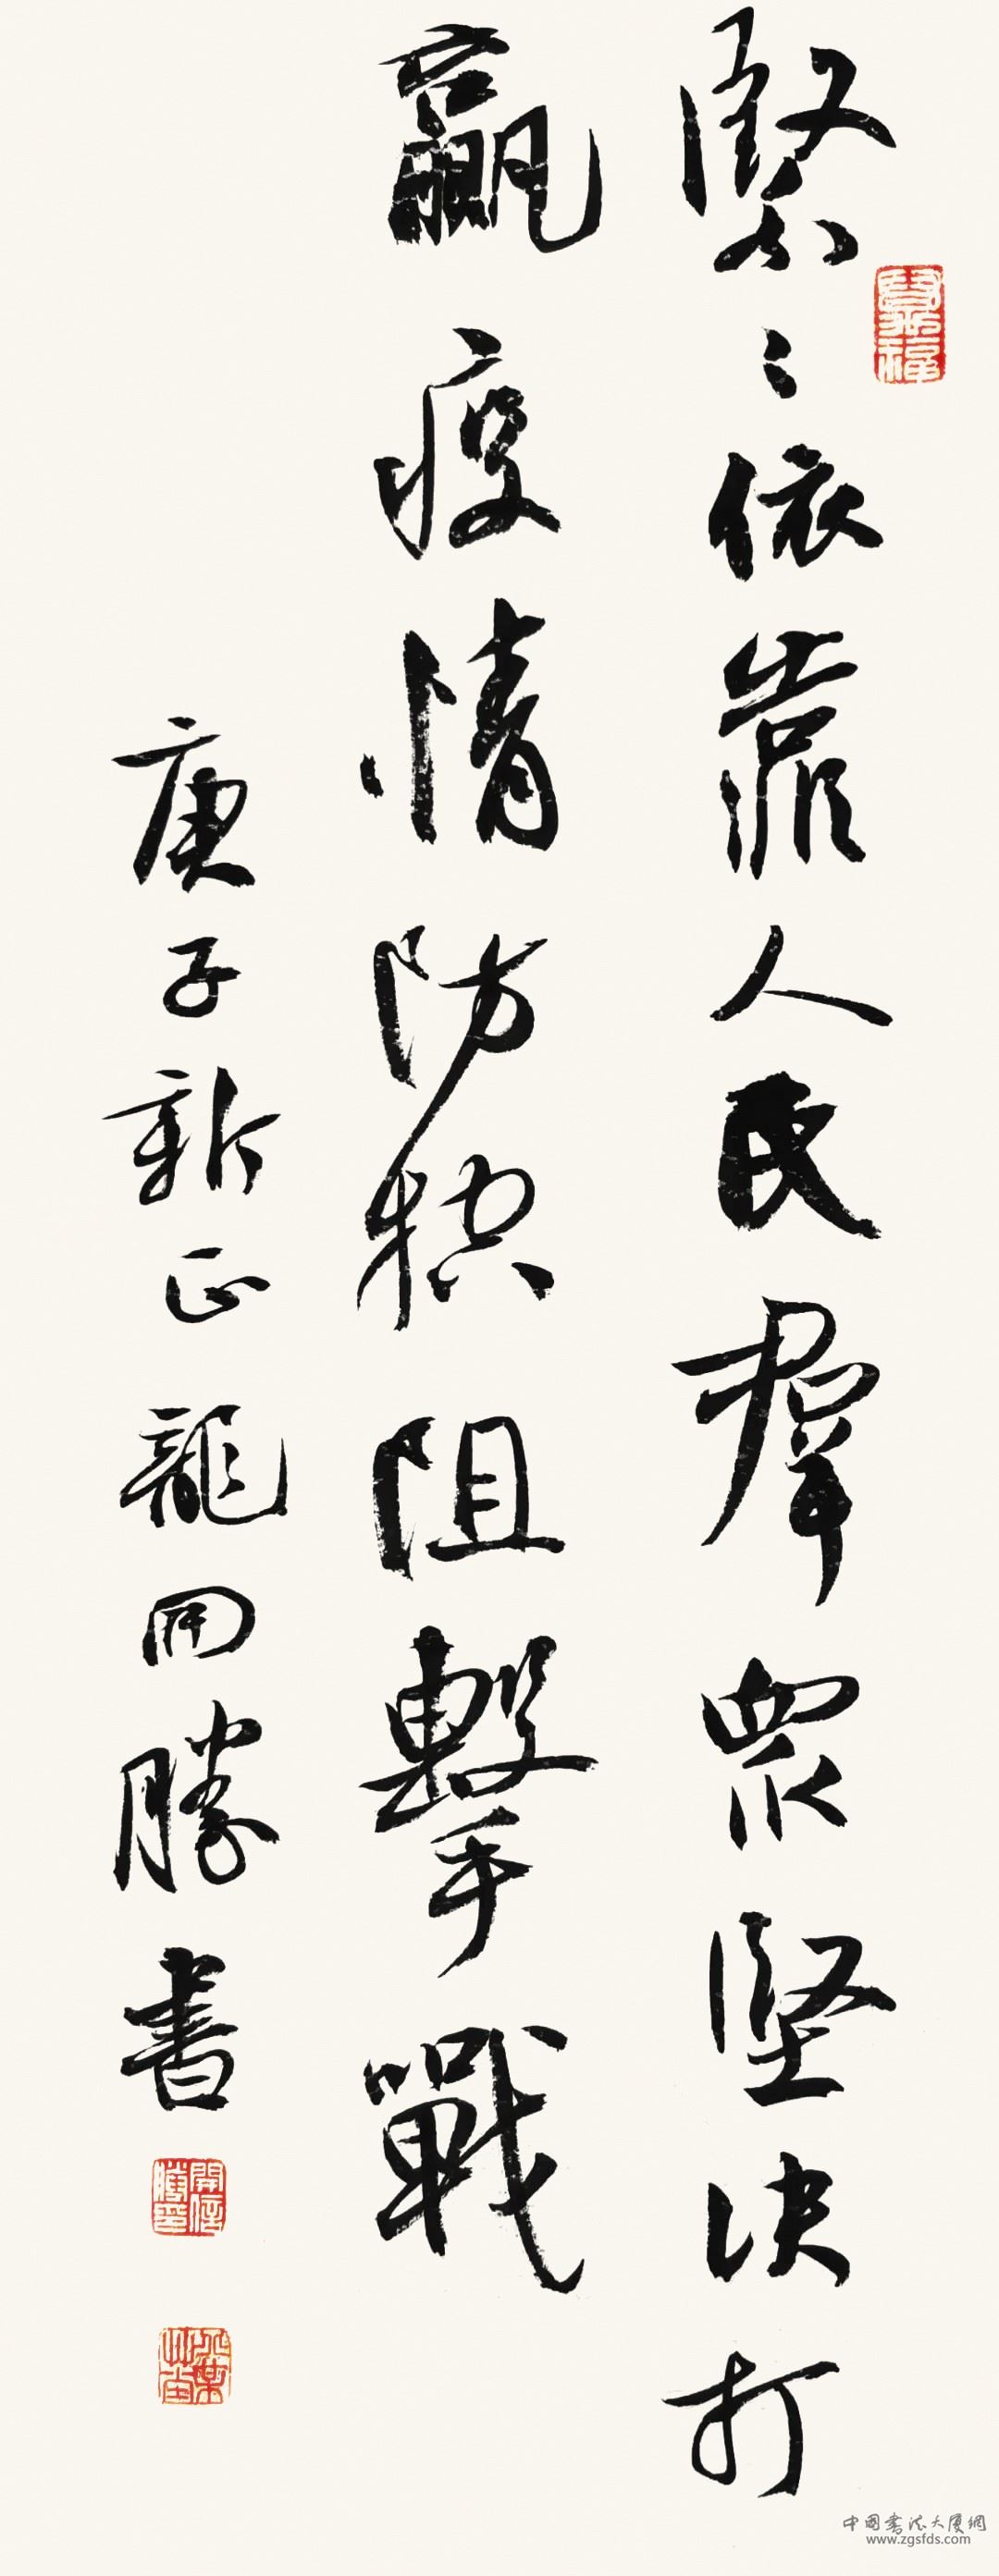 緊〻依靠人民羣眾堅決打
贏疫情防控阻擊戰
庚子新正龍開勝書
中国书法大厦网
www.zgsfds.com